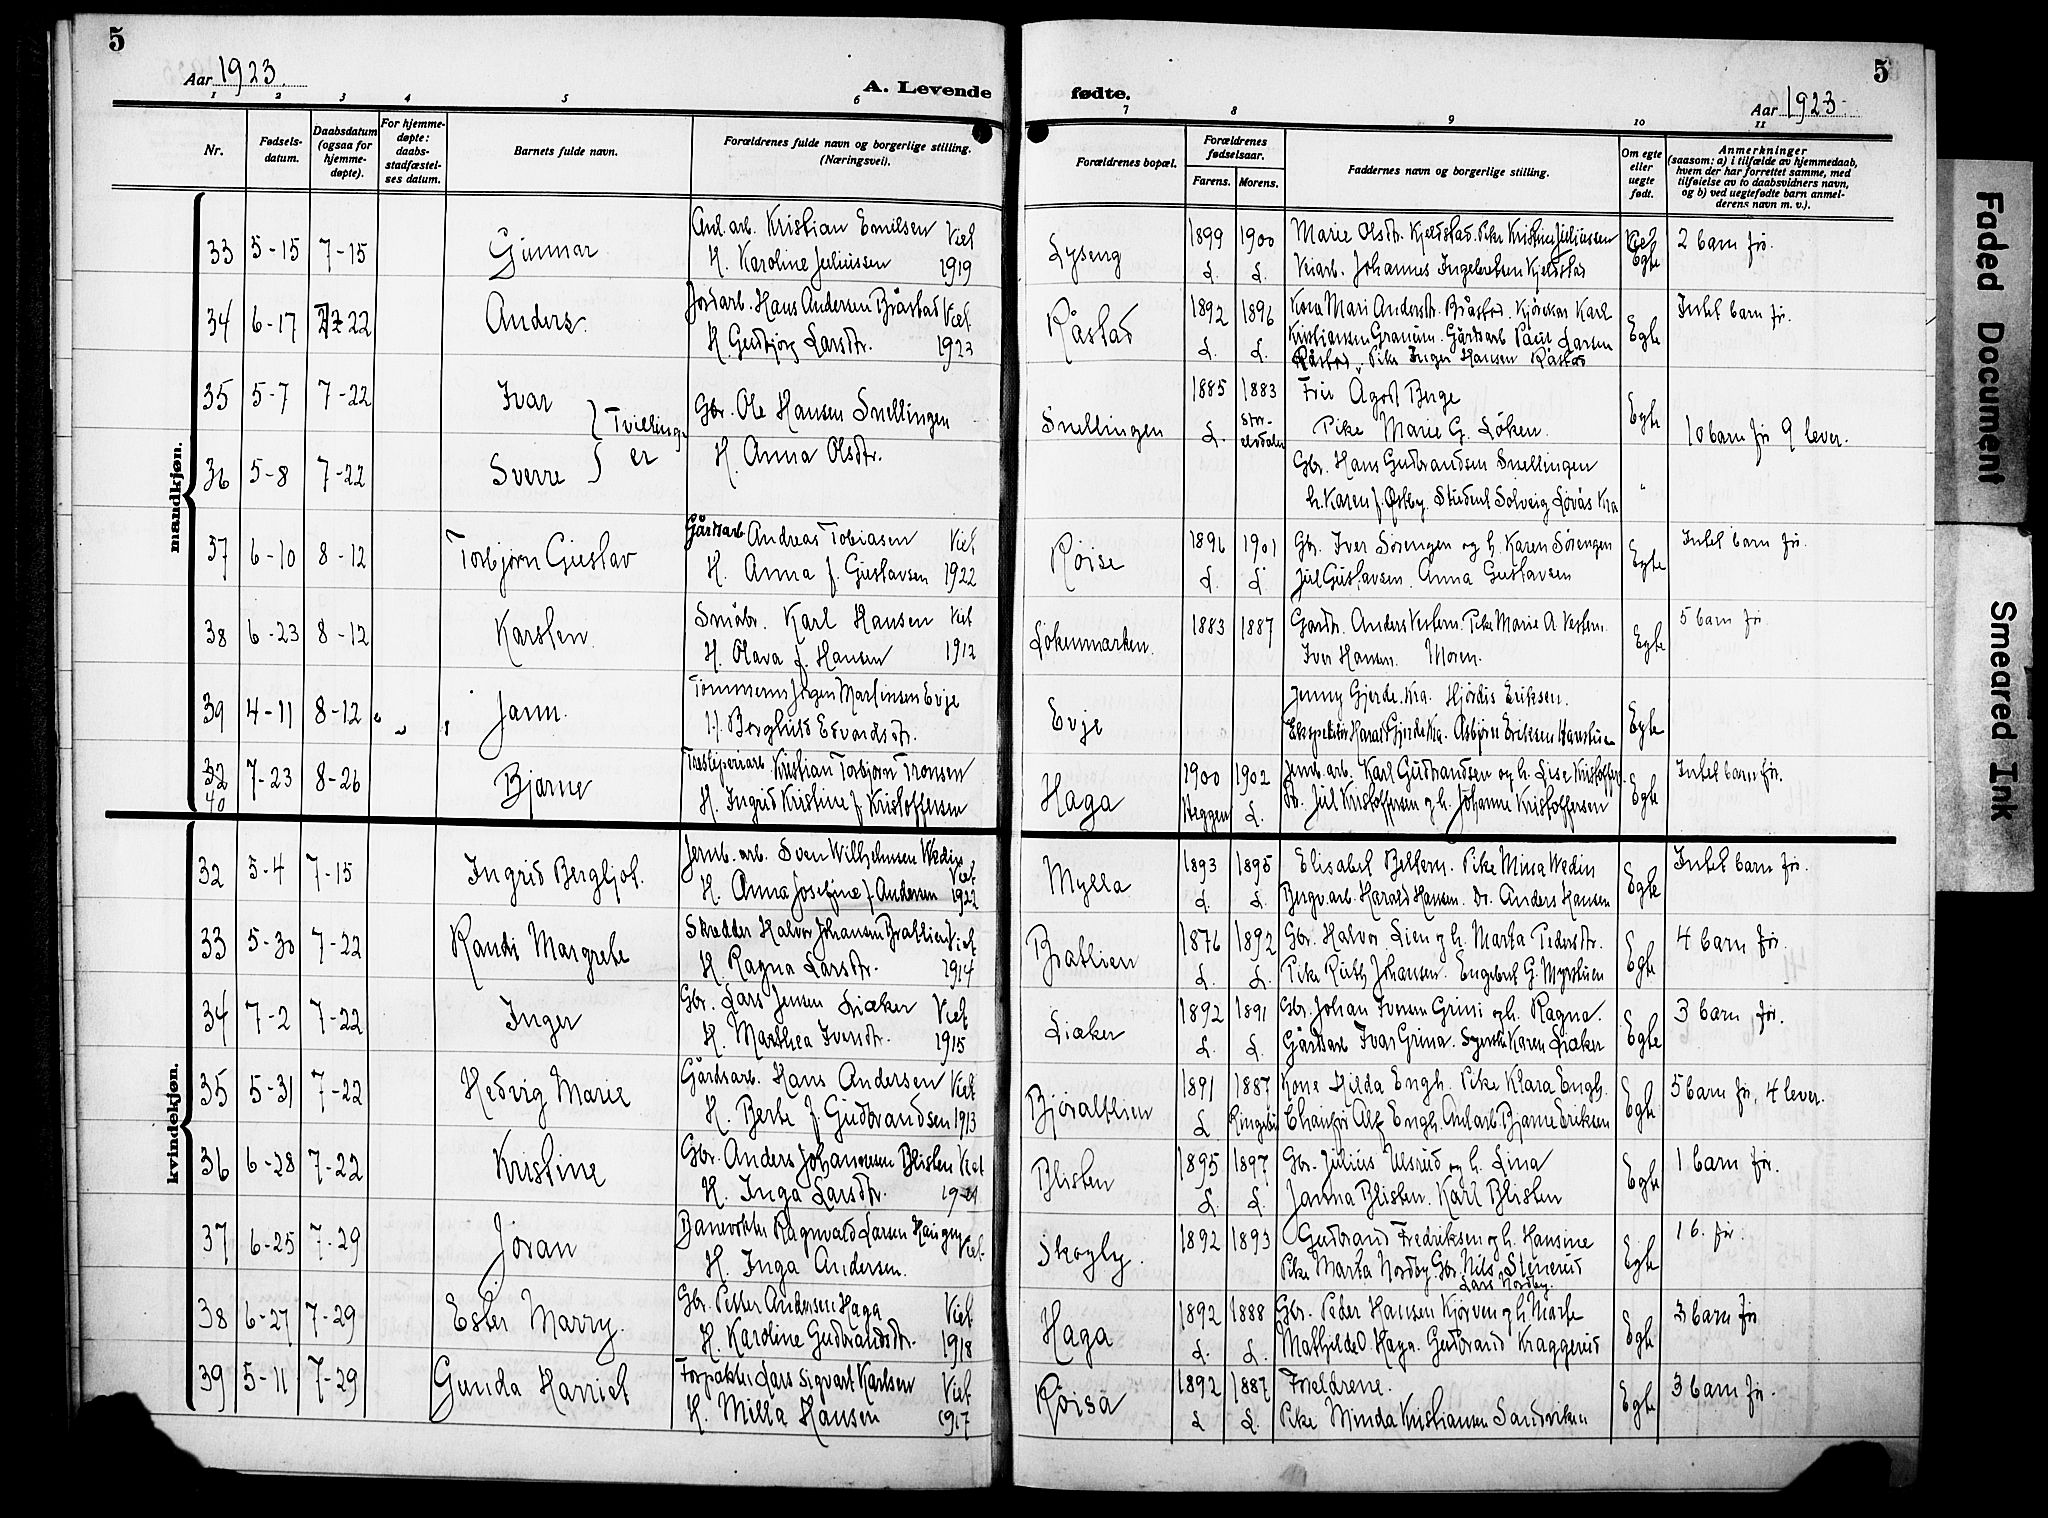 5
Aar 1923.
A. Levende
fødte.
5
Aar 1923.
1 2 3 4 5 6 7 8 9 10 11
Nr.
Fødsels-
datum.
Daabsdatum
(ogsaa for
hjemme-
døpte).
For hjemme-
døpte:
daabs-
stadfæstel-
ses datum.
Barnets fulde navn.
Forældrenes fulde navn og borgerlige stilling.
(Næringsvei).
Forældrenes bopæl.
Forældrenes
fødselsaar.
Farens. Morens.
Faddernes navn og borgerlige stilling.
Om egte
eller
uegte
født.
Anmerkninger
(saasom: a) i tilfælde av hjemmedaab,
hvem der har forrettet samme, med
tilføielse av to daabsvidners navn,
og b) ved uegtefødte barn anmel-
derens navn m. v.).
mandkjøn.
33 5-15 7-15 Gunnar Anl. arb. Kristian Emilsen Viet Lyseng 1899 1900 Marie Olsdtr. Kjeldstad. Pike Kristine Juliussen Egte 2 barn før.
H. Karoline Juliussen 1919 L. L. Johannes Ingebretsen Kjeldstad
34 6-17 7-22 Anders Jordarb. Hans Andersen Bråstad Viet Råstad 1892 1896 Kona Mari Anderstr. Bråstad. Karl Egte Intet barn før.
H. Gudbjørg Larsdtr. 1923 L. L. Kristiansen Granum. Gårdsarb Paul Larsen
Råstad, Pike Inger Hansen Råstad
35 5-7 7-22 Ivar Tvillinger Gbr. Ole Hansen Snellingen Snellingen 1885 1883 Frue Agot Berge Egte
L. Stor-elvdalen Pike Marie G. Løken. 10 barn før 9 lever.
36 5-8 7-22 Sverre H. Anna Olsdtr. Gbr. Hans Gudbrandsen Snellingen "
h. Karen f. Østby. Student Solveig Løvås Kra
37 6-10 8-12 Torbjørn Gustav Gårdsarb Andreas Tobiasen Viet Røise 1896 1901 Gbr. Iver Sørengen og h. Karen Sørengen Egte Intet barn før.
H. Anna f. Gustavsen 1922 L. L. Jul Gustavsen. Anna Gustavsen
38 6-23 8-12 Karsten. Småbr. Karl Hansen Viet Løkenmarken. 1883 1887 Gardbr. Anders Vestern. Pike Marie A Vestern. Egte 5 barn før
H. Olava f. Hansen 1912 Iver Hansen. Moren.
39 4-11 8-12 Jann. Tømmerm Jørgen Martinsen Evje Evje Jenny Gjerde. Kra. Hjørdis Eriksen. Egte
H. Borghild Edvardsdtr. Ekspeditør Harald Gjerde Kra. Asbjørn Eriksen
32 40 7-23 8-26 Bjarne Kristian Torbjørn Tronsen Haga 1900 1902 Jernb. arb. Karl Gudbrandsen og h. Lise Kristoffers. Egte Intet barn før.
H. Ingrid Kristine f Kristoffersen Heggen L. Do. Jul Kristoffersen og h. Johanne Kristoffersen
kvindekjøn.
32 5-4 7-15 Ingrid Bergljot. Jernb. arb. Sven Wilhelmsen Wedin Viet Mylla 1893 1895 Elisabet Bettern. Pike Mina Wedin Egte Intet barn før.
H. Anna Josefine f Andersen 1922 L. L. Bergv. arb. Harald Hansen. Do. Anders Hansen
33 5-30 7-22 Randi Margrete Skredder Halvor Johansen Bratlien Viet Bratlien 1876 1892 Gbr. Halvor Lien og h. Marta Pedersdtr. Egte 4 barn før.
H. Ragna Larsdtr. 1914 L. L. Pike Ruth Johansen. Engebret G. Myrstuen
34 7-2 7-22 Inger Gbr. Lars Jensen Liaker Viet Liaker 1892 1891 Gbr. Johan Iversen Grini og h. Ragna. Egte 3 barn før.
H. Marthea Iversdtr. 1915 L. L. Gårdsarb Ivar Grina. Karen Liaker
35 5-31 7-22 Hedvig Marie Gårdsarb. Hans Andersen Viet Bjøraltlien 1891 1887 Kone Hilda Engh. Pike Klara Engh. Egte 5 barn før, 4 lever.
H. Berte f Gudbrandsen 1913 L Ringebu Chauffør Alf Engh. Anl arb Bjarne Eriksen
36 6-28 7-22 Kristine Gbr. Anders Johannesen Blisten Viet Blisten 1895 1897 Gbr. Julius Ulsrud og h. Lina Egte 1 barn før.
H. Inga Larsdtr. 1921 L. L. Janna Blisten. Karl Blisten
37 6-25 7-29 Jøran Banevokter Ragnvald Larsen Haugen Viet. Skogly. 1892 1893 Gudbrand Fredriksen og h. Hansine Egte 1 b. før.
H. Inga Andersen. Pike Marta Nordby Gbr. Nils Stenerud
Lars Nordby.
38 6-27 7-29 Ester Marry. Gbr. Petter Andersen Haga Viet Haga 1892 1888 Gbr. Peder Hansen Kjørven og h. Marte Egte 3 barn før
H. Karoline Gudbrandsdtr. 1918 L. L. Mathilde O. Haga. Gudbrand Kraggerud
39 5-11 7-29 Gunda Harriet Forpakter Lars Sigvart Karlsen Viet Røisa 1892 1887 Foreldrene. Egte 3 barn før.
H. Milla Hansen 1917 L L. Pike Minda Kristiansen Sandviken
Faded Document
Smeared Ink